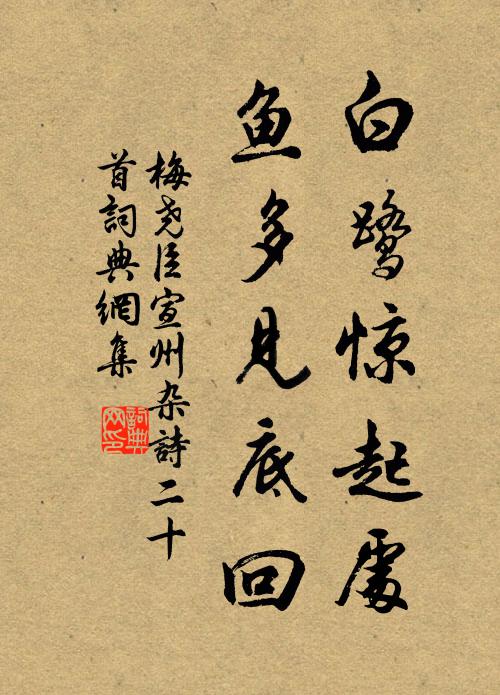 白鹭惊起處
鱼多見底回
梅尧臣宣州杂詩二十
首詞典網集
詞典
网印